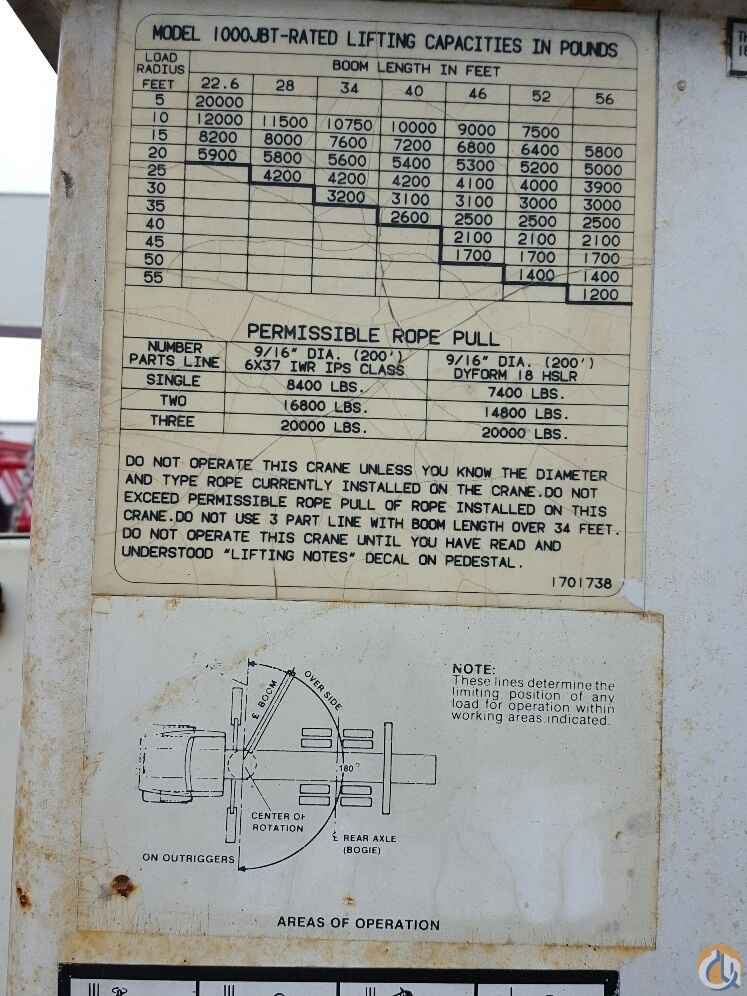 MODEL 1000JBT-RATED LIFTING CAPACITIES IN POUNDS
LOAD RADIUS FEET BOOM LENGTH IN FEET
22.6 28 34 40 46 52 56
5 20000
10 12000 11500 10750 10000 9000 7500
15 8200 8000 7600 7200 6800 6400 5800
20 5900 5800 5600 5400 5300 5200 5000
25 4200 4200 4200 4100 4000 3900
30 3200 3100 3100 3000 3000
35 2600 2500 2500 2500
40 2100 2100 2100
45 1700 1700 1700
50 1400 1400
55 1200
PERMISSIBLE ROPE PULL
NUMBER PARTS LINE 9/16" DIA. (200') 6X37 IWR IPS CLASS 9/16" DIA. (200') DYFORM 18 HSLR
SINGLE 8400 LBS. 7400 LBS.
TWO 16800 LBS. 14800 LBS.
THREE 20000 LBS. 20000 LBS.
DO NOT OPERATE THIS CRANE UNLESS YOU KNOW THE DIAMETER
AND TYPE ROPE CURRENTLY INSTALLED ON THE CRANE.DO NOT
EXCEED PERMISSIBLE ROPE PULL OF ROPE INSTALLED ON THIS
CRANE.DO NOT USE 3 PART LINE WITH BOOM LENGTH OVER 34 FEET.
DO NOT OPERATE THIS CRANE UNTIL YOU HAVE READ AND
UNDERSTOOD "LIFTING NOTES" DECAL ON PEDESTAL.
1701738
NOTE:
These lines determine the
limiting position of any
load for operation within
working areas indicated.
℄ BOOM
OVER SIDE
180°
CENTER OF
ROTATION
℄ REAR AXLE
(BOGIE)
ON OUTRIGGERS
AREAS OF OPERATION